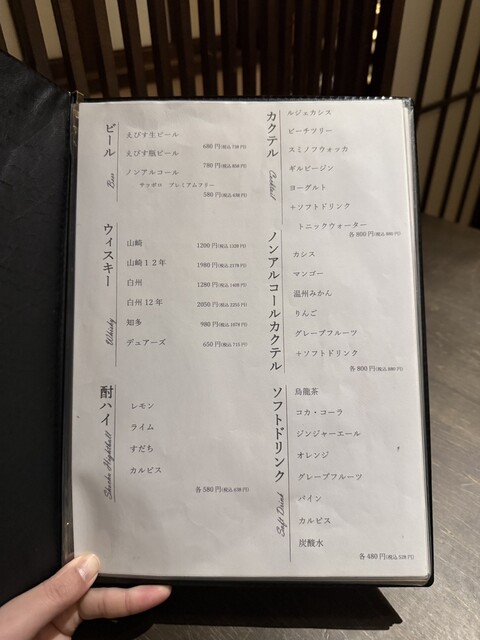 ビール
Beer
えびす生ビール
680円(税込748円)
えびす瓶ビール
780円(税込858円)
ノンアルコール
サッポロ プレミアムフリー
580円(税込638円)
ウィスキー
Whisky
山崎 1200円(税込1320円)
山崎12年 1980円(税込2178円)
白州 1280円(税込1408円)
白州12年 2050円(税込2255円)
知多 980円(税込1078円)
デュアーズ 650円(税込715円)
酎ハイ
レモン
ライム
すだち
カルピス
各580円(税込638円)
カクテル
Cocktail
ルジェカシス
ピーチツリー
スミノフウォッカ
ギルビージン
ヨーグルト
+ソフトドリンク
トニックウォーター
各800円(税込880円)
ノンアルコールカクテル
カシス
マンゴー
温州みかん
りんご
グレープフルーツ
+ソフトドリンク
各800円(税込880円)
ソフトドリンク
Soft Drink
烏龍茶
コカ・コーラ
ジンジャーエール
オレンジ
グレープフルーツ
パイン
カルピス
炭酸水
各480円(税込528円)